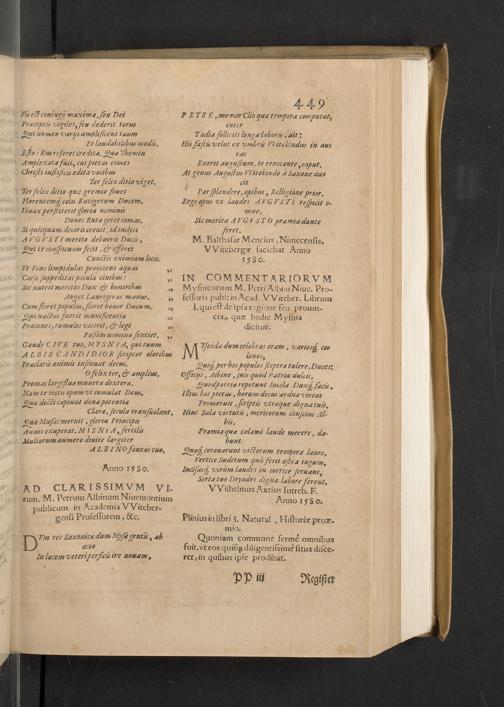 449
Vis est coniugij maxima, seu Dei
Præceptis vigiles, seu dederit torus
Qui nomen varijs amplificent tuum
Et laudabilibus modis.
Esto: Rursserst credita, Qua Themin
Amplexata fuit, cui pietas comes
Christi iustificis edita vocibus
Ter felix ditio viget.
Ter felix ditio quæ gremio foues
Florentemq́; colis Rutigerum Ducem,
Viuax perstiterit gloria nominis
Donec Ruta geret comas.
Si quicquam decoris creuit, id inclyti
AVGVSTI merito debueris Ducis,
Qui te conspicuam fecit, & efferet
Cunctis eximiam locis.
Vt Fons limpidulas proijciens aquas
Caris suppeditas pocula ciuibus:
Sic nutrit meritos Dux & honoribus
Auget Laurigeras manus.
Cum floret populus, floret honor Ducum,
Qui nactus fuerit munificentia
Præcones, tumulos vicerit, & legi
Passim nomina sentiet.
Gaude CIVE tuo, MYSNIA, qui tuum
ALBIS CANDIDIOR scriptor oloribus
Præclaris animis insinuat decus,
O felix ter, & amplius.
Promas largiflua munera dextera,
Nam te multa opum vis cumulat Deum,
Qua docti capiunt dona potentia
Clara, secula transuolant.
Quæ Musas meruit, gloria Principis
Annos exuperat, MISNIA, fertilis
Multorum numero diuite largiter
ALBINO faueas tuo.
Anno 1580.
AD CLARISSIMVM VI-
rum, M. Petrum Albinum Niuemontium
publicum in Academia VViteber-
gensi Professorem, &c.
DVm res Saxonicæ dum Mysa gentis, ab
æuo
In lucem veteri perficis ire nouam,
PETRE, memor Clio quæ tempora computat,
inter
Tædia solliciti longa laboris, ait:
His fastis velut ex vmbris VVitekindus in au-
ras
Exerit augustum, te renscante, caput.
At genus Augustus VVitekindo à Saxone du-
cit
Par splendore, opibus, Relligione prior.
Ergo opus vt laudes AVGVSTI respicit o-
mne,
Sic merita AVGVSTO præmia dante
feret.
M. Balthasar Mencius, Nimecensis,
VVitebergæ faciebat Anno
1580.
IN COMMENTARIORVM
Mysnicorum M. Petri Albini Niue. Pro-
fessoris publ: in Acad. VViteber. Librum
I. qui est de ipsa regione seu prouin-
cia, quæ hodie Mysnia
dicitur.
MYseida dum celebras oram, variosq́; co-
lonos,
Quisq́; per hos populos sceptra tulere, Duces:
Officijs, Albine, tuis quod Patria dulcis,
Quod patria repetunt inclita Duxq́; facis.
Illius hoc pietas, horum decus ardua virtus
Promeruit, scriptis vtraque digna tuis.
Hinc Sola virtutis, meritorum conscius Al-
bis,
Præmia quæ calami laude merere, da-
bunt.
Quasq́; coronarunt vatorum tempora lauro,
Vertice Sudetum quà ferit astra iugum,
Incisasq́; virûm laudes in cortice seruant,
Serta tuo Dryades digna labore ferent.
VVilhelmus Axtius Iutreb. F.
Anno 1580.
Plinius in libri 3. Natural, Historiæ proœ-
mio.
Quoniam commune fermè omnibus
fuit, vt eos quisq́; diligentissimè situs disce-
ret, in quibus ipse prodibat.
PP iij
Register